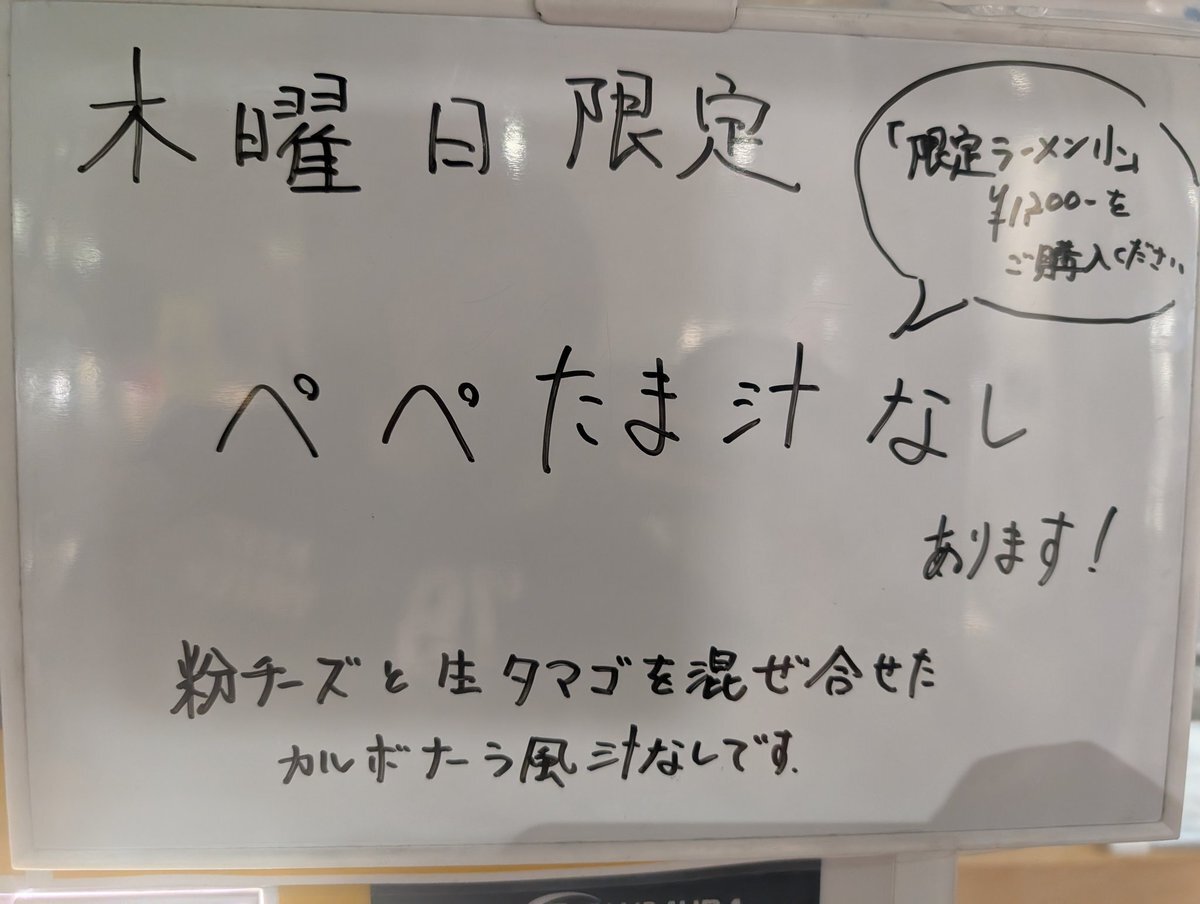 木曜日限定
「限定ラーメン小」
¥1,200-を
ご購入ください
ペペたま汁なし
あります!
粉チーズと生タマゴを混ぜ合せた
カルボナーラ風汁なしです.